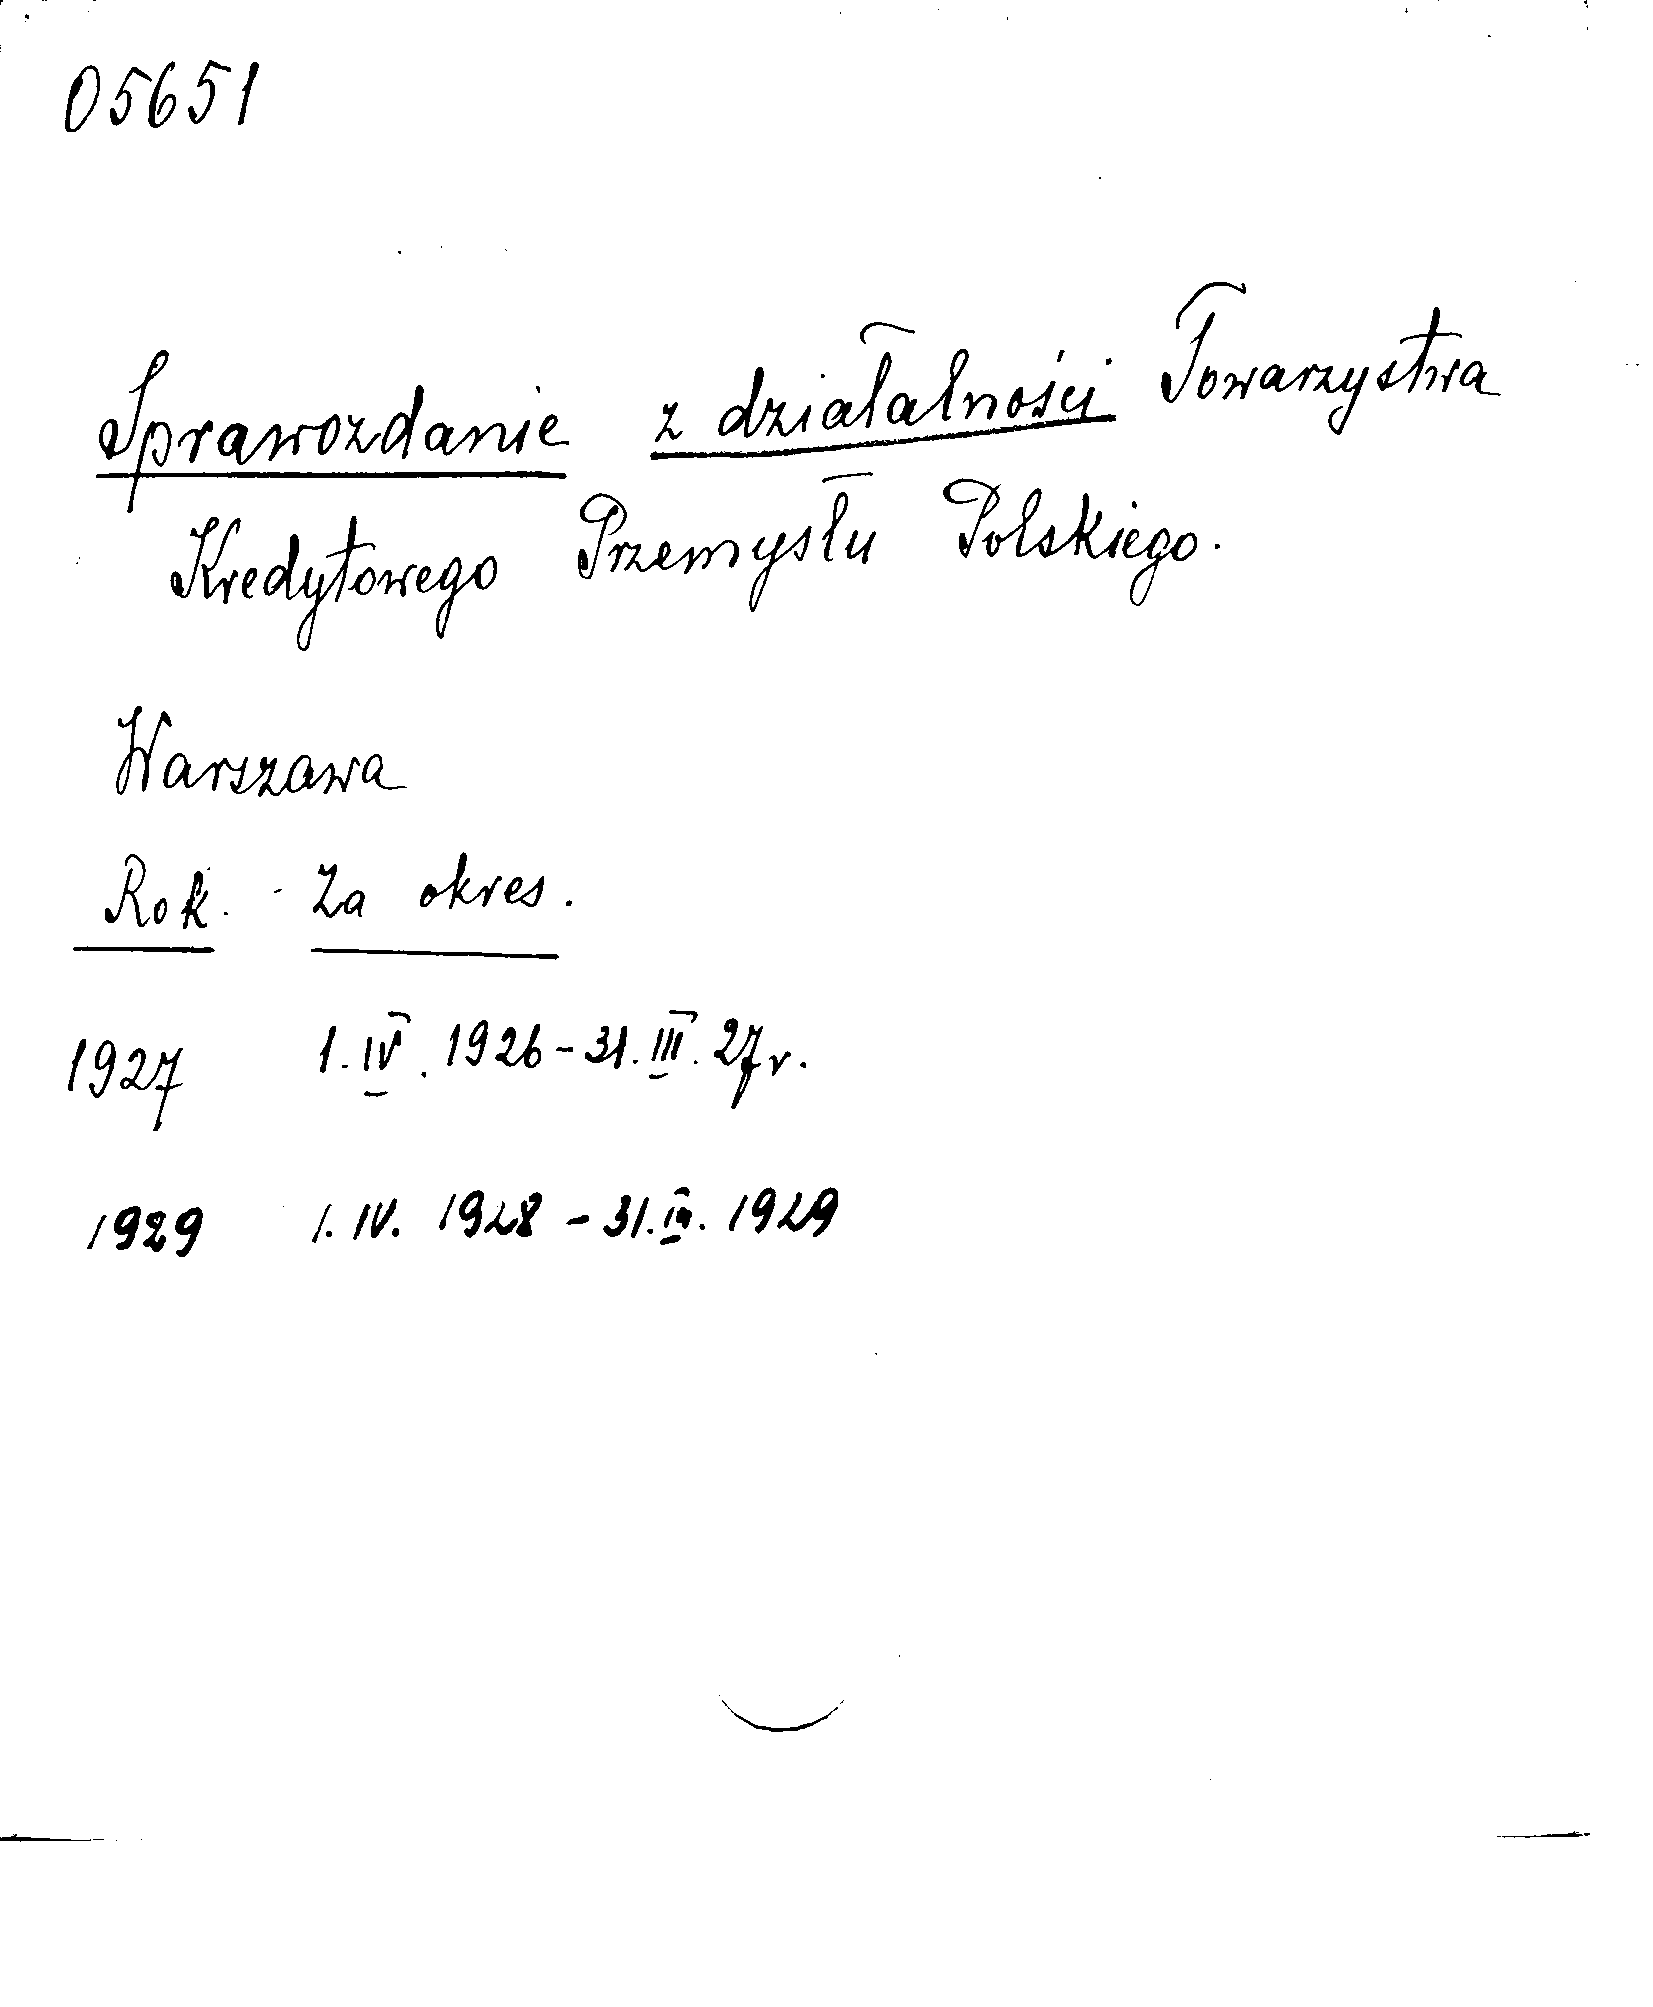 05651
Sprawozdanie z działalności Towarzystwa
Kredytowego Przemysłu Polskiego.
Warszawa
Rok. - Za okres.
1927 1. IV. 1926 - 31. III. 27 r.
1929 1. IV. 1928 - 31. III. 1929